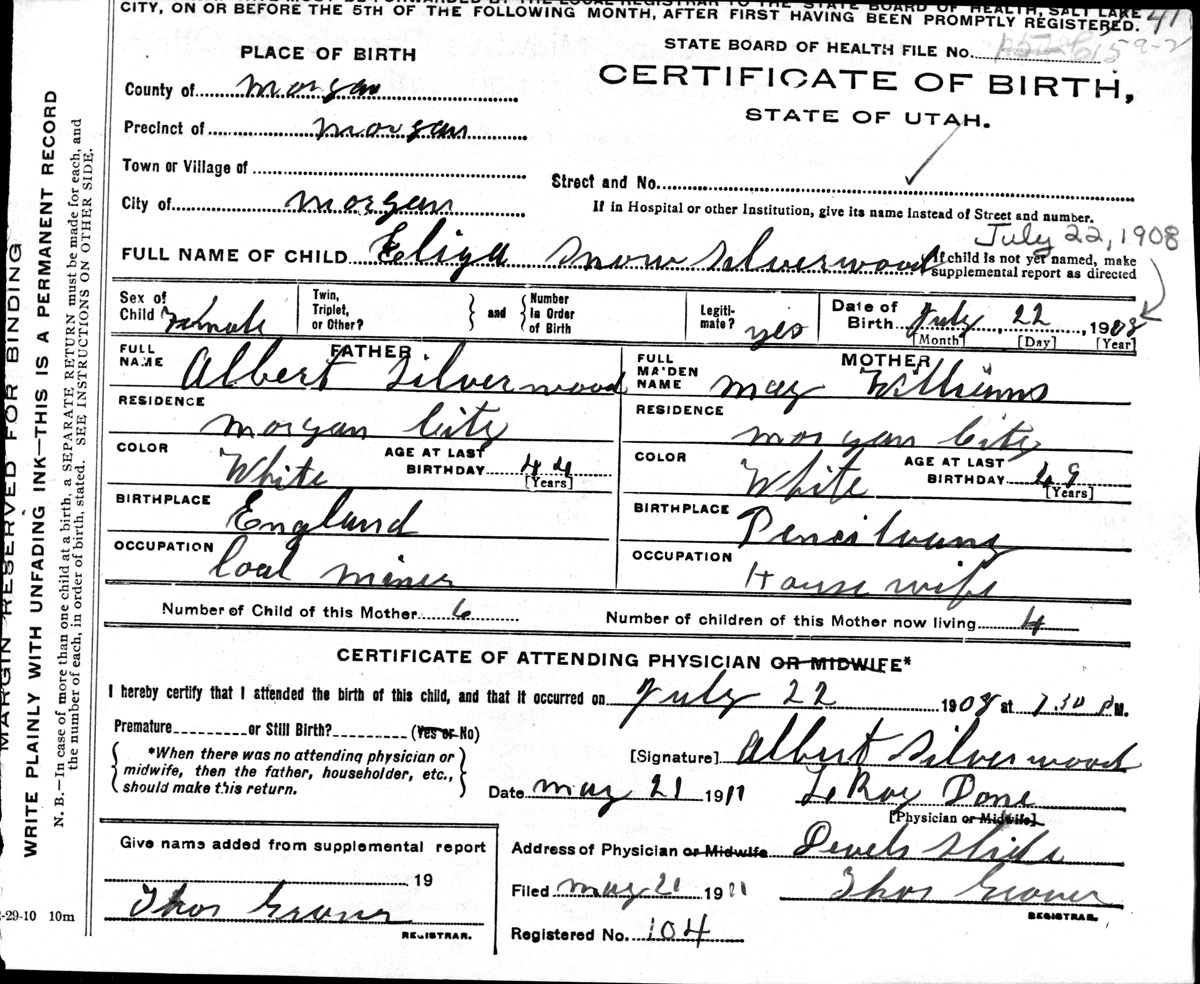 CITY, ON OR BEFORE THE 5TH OF THE FOLLOWING MONTH, AFTER FIRST HAVING BEEN PROMPTLY REGISTERED. 41
PLACE OF BIRTH
STATE BOARD OF HEALTH FILE No. 159-2
CERTIFICATE OF BIRTH,
STATE OF UTAH.
County of Morgan
Precinct of Morgan
Town or Village of
Street and No.
City of Morgan
If in Hospital or other Institution, give its name instead of Street and number.
July 22, 1908
FULL NAME OF CHILD Eliza Snow Silverwood
If child is not yet named, make supplemental report as directed
Sex of Child Female
Twin, Triplet, or Other?
and
Number in Order of Birth
Legitimate? yes
Date of Birth July, 22, 1908
[Month] [Day] [Year]
FATHER
FULL NAME Albert Silverwood
RESIDENCE Morgan City
COLOR White
AGE AT LAST BIRTHDAY 44
[Years]
BIRTHPLACE England
OCCUPATION Coal miner
MOTHER
FULL MAIDEN NAME May Williams
RESIDENCE Morgan City
COLOR White
AGE AT LAST BIRTHDAY 49
[Years]
BIRTHPLACE
OCCUPATION House wife
Number of Child of this Mother 6
Number of children of this Mother now living 4
CERTIFICATE OF ATTENDING PHYSICIAN OR MIDWIFE*
I hereby certify that I attended the birth of this child, and that it occurred on July 22 1908 at 7.30 P M.
Premature or Still Birth? (Yes or No)
*When there was no attending physician or midwife, then the father, householder, etc., should make this return.
[Signature] Albert Silverwood
Date May 21 1911 LeRoy Done
[Physician or Midwife]
Give name added from supplemental report
19
Thos Grover
REGISTRAR.
Address of Physician or Midwife Devels Slide
Filed May 21 1911 Thos Grover
REGISTRAR.
Registered No. 104
MARGIN RESERVED FOR BINDING
WRITE PLAINLY WITH UNFADING INK—THIS IS A PERMANENT RECORD
N. B.—In case of more than one child at a birth, a SEPARATE RETURN must be made for each, and
the number of each, in order of birth, stated. SEE INSTRUCTIONS ON OTHER SIDE.
-29-10 10m